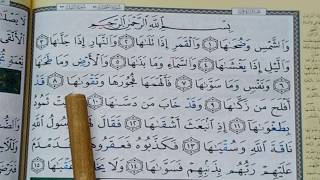 بِسْمِ ٱللَّهِ ٱلرَّحْمَٰنِ ٱلرَّحِيمِ
وَٱلشَّمْسِ وَضُحَىٰهَا ١ وَٱلْقَمَرِ إِذَا تَلَىٰهَا ٢ وَٱلنَّهَارِ إِذَا جَلَّىٰهَا ٣
وَٱلَّيْلِ إِذَا يَغْشَىٰهَا ٤ وَٱلسَّمَآءِ وَمَا بَنَىٰهَا ٥ وَٱلْأَرْضِ وَمَا طَحَىٰهَا
٦ وَنَفْسٍ وَمَا سَوَّىٰهَا ٧ فَأَلْهَمَهَا فُجُورَهَا وَتَقْوَىٰهَا ٨ قَدْ
أَفْلَحَ مَن زَكَّىٰهَا ٩ وَقَدْ خَابَ مَن دَسَّىٰهَا ١٠ ثَمُودُ
بِطَغْوَىٰهَآ ١١ إِذِ ٱنۢبَعَثَ أَشْقَىٰهَا ١٢ فَقَالَ رَسُولُ ٱللَّهِ
نَاقَةَ ٱللَّهِ وَسُقْيَىٰهَا ١٣ فَكَذَّبُوهُ فَعَقَرُوهَا فَدَمْدَمَ
عَلَيْهِمْ رَبُّهُم بِذَنۢبِهِمْ فَسَوَّىٰهَا ١٤ وَلَا يَخَافُ